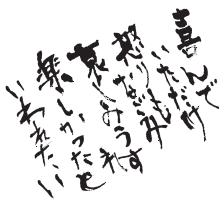 喜んで
いただけ
怒りもみ
哀しみうれ
楽しかったと
いわれたい